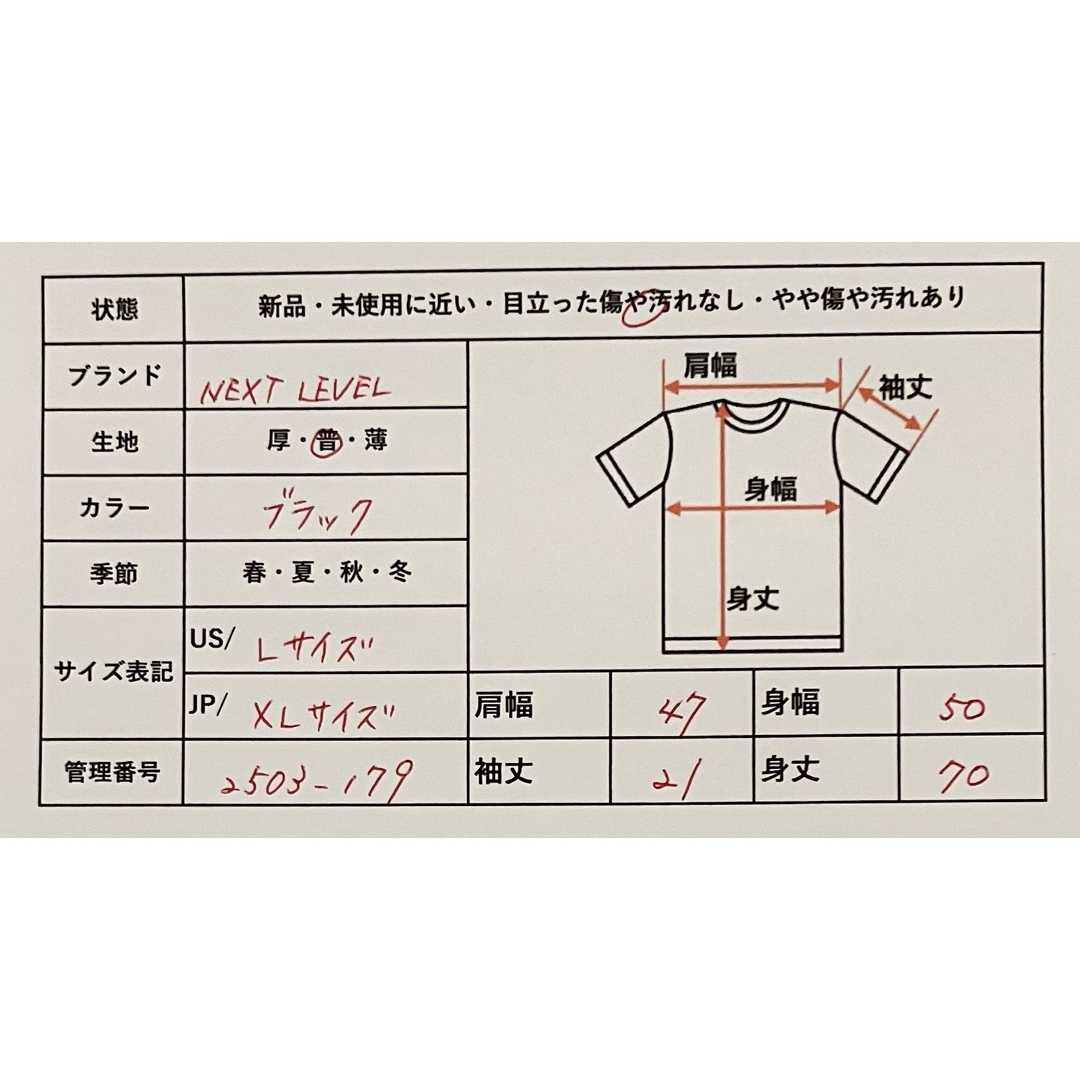 状態 新品・未使用に近い・目立った傷や汚れなし・やや傷や汚れあり
ブランド NEXT LEVEL
生地 厚・普・薄
カラー ブラック
季節 春・夏・秋・冬
サイズ表記 US/ Lサイズ
JP/ XLサイズ
管理番号 2503-179
肩幅
袖丈
身幅
身丈
肩幅 47 身幅 50
袖丈 21 身丈 70